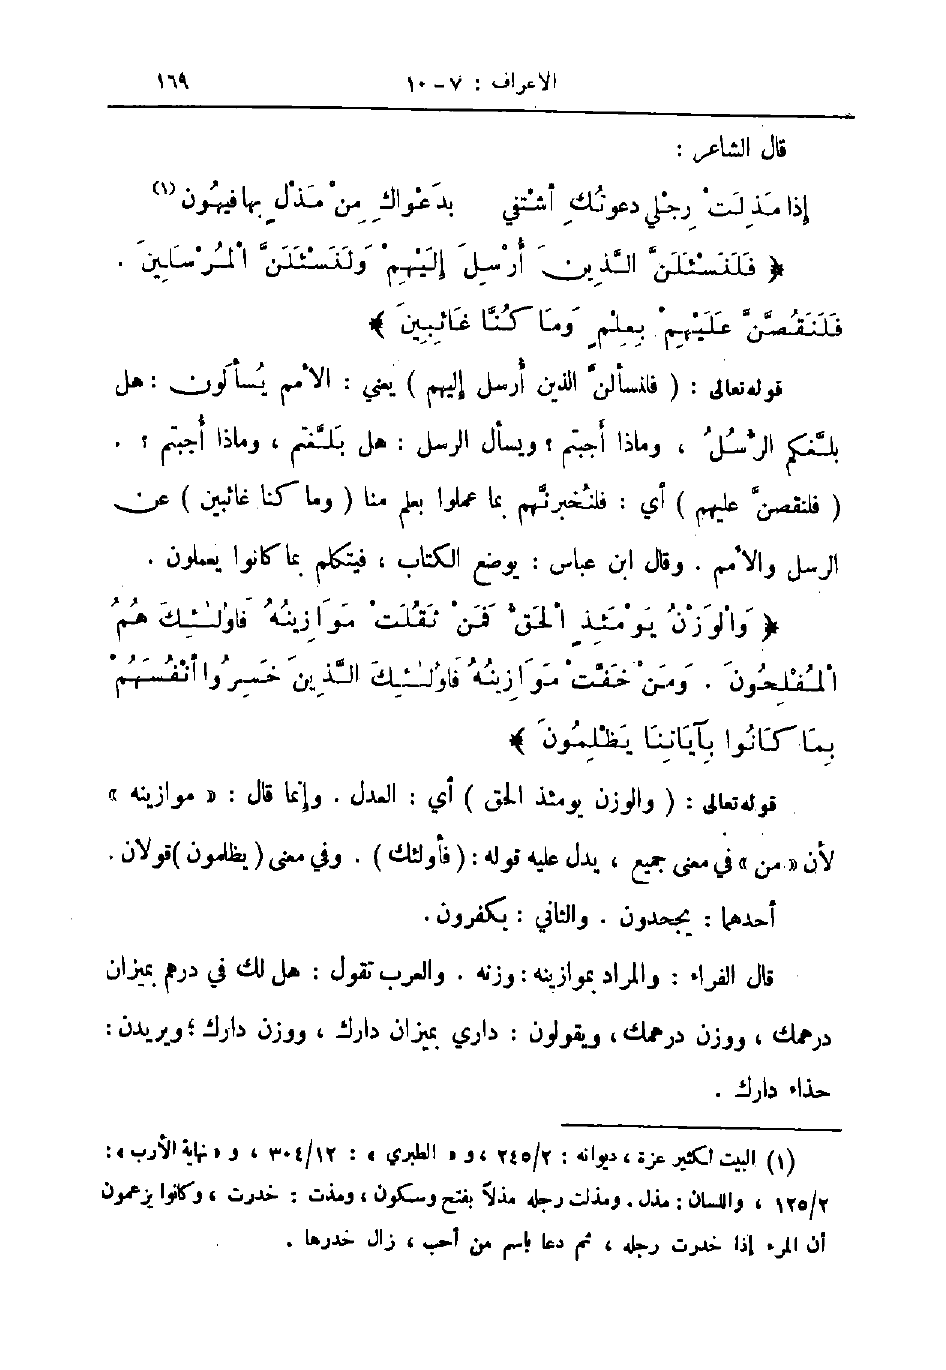 الأعراف : ٧ – ١٠ ١٦٩
قال الشاعر :
إذا مَذِلَتْ رِجْلي دعوتُكِ أشتفي بدَعْواكِ مِنْ مَذْلٍ بها فيهُون (١)
﴿ فَلَنَسْئَلَنَّ الَّذِينَ أُرْسِلَ إِلَيْهِمْ وَلَنَسْئَلَنَّ الْمُرْسَلِينَ .
فَلَنَقُصَّنَّ عَلَيْهِمْ بِعِلْمٍ وَمَا كُنَّا غَائِبِينَ ﴾
قوله تعالى : ( فلنسألنَّ الذين أُرسل إليهم ) يعني : الأمم يُسألون : هل
بلَّغكم الرُّسُلُ ، وماذا أُجبتم ؟ ويسأل الرسل : هل بَلَّغتم ، وماذا أُجبتم ؟ .
( فلنقصنَّ عليهم ) أي : فلنُخبرنَّهم بما عملوا بعلم منا ( وما كنا غائبين ) عن
الرسل والأمم . وقال ابن عباس : يوضع الكتاب ، فيتكلم بما كانوا يعملون .
﴿ وَالْوَزْنُ يَوْمَئِذٍ الْحَقُّ فَمَنْ ثَقُلَتْ مَوَازِينُهُ فَأُولٰئِكَ هُمُ
الْمُفْلِحُونَ . وَمَنْ خَفَّتْ مَوَازِينُهُ فَأُولٰئِكَ الَّذِينَ خَسِرُوا أَنْفُسَهُمْ
بِمَا كَانُوا بِآيَاتِنَا يَظْلِمُونَ ﴾
قوله تعالى : ( والوزن يومئذ الحق ) أي : العدل . وإنما قال : « موازينه »
لأن « من » في معنى جميع ، يدل عليه قوله : ( فأولئك ) . وفي معنى ( يظلمون ) قولان .
أحدهما : يجحدون . والثاني : يكفرون .
قال الفراء : والمراد بموازينه : وزنه . والعرب تقول : هل لك في درهم بميزان
درهمك ، ووزن درهمك ، ويقولون : داري بميزان دارك ، ووزن دارك ؛ ويريدن :
حذاء دارك .
(١) البيت لكثير عزة ، ديوانه : ٢٤٥/٢ ، و« الطبري » : ٣٠٤/١٢ ، و « نهاية الأرب » :
١٢٥/٢ ، واللسان : مذل . ومذلت رجله مذلاً بفتح وسكون ، ومذت : خدرت ، وكانوا يزعمون
أن المرء إذا خدرت رجله ، ثم دعا باسم من أحب ، زال خدرها .